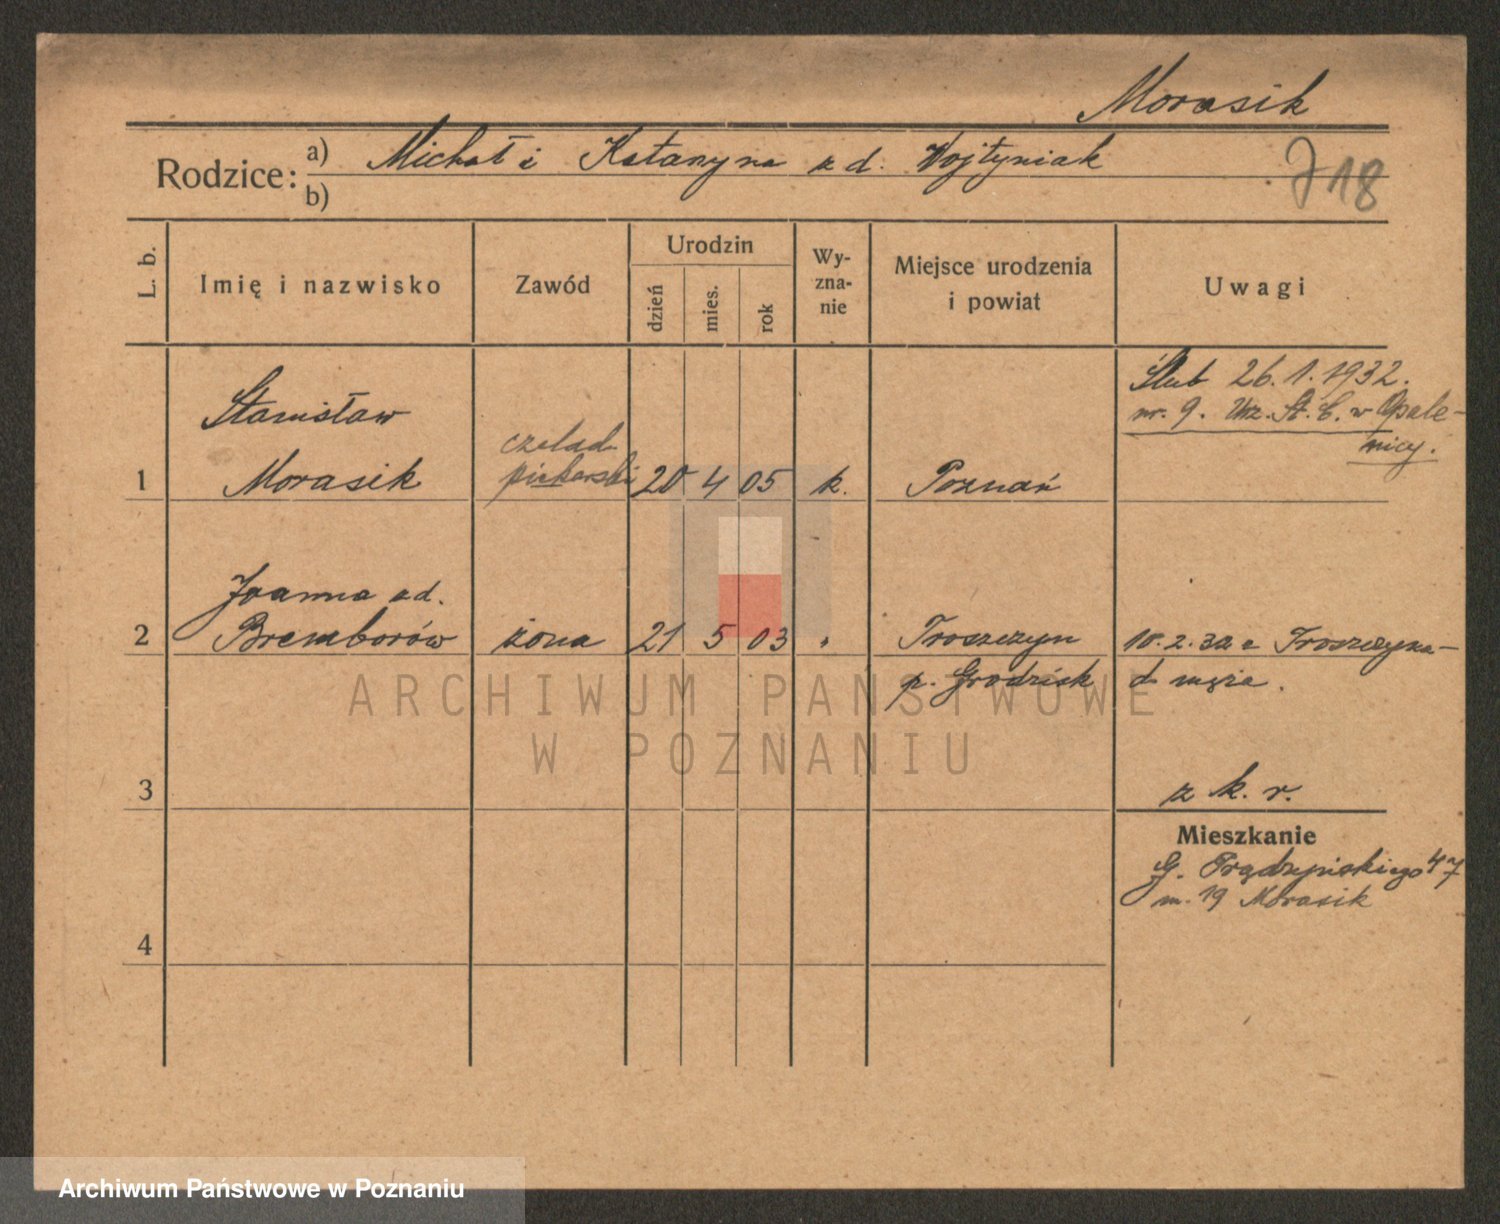 Morasik
Rodzice: a) Michał i Katarzyna z d. Wojtyniak
b)
J 18
L. b.
Imię i nazwisko
Zawód
Urodzin
dzień
mies.
rok
Wy-
zna-
nie
Miejsce urodzenia
i powiat
Uwagi
Ślub 26.1.1932.
nr. 9. Urz. St. C. w Opale-
nicy.
Stanisław
czelad.
1 Morasik piekarski 20 4 05 k. Poznań
Joanna z d.
2 Bremborów żona 21 5 03 " Troszczyn 10.2.32 z Troszczyna
p. Grodzisk d męża.
3
z k. r.
Mieszkanie
G. Prądzyńskiego 47
m. 19 Morasik
4
ARCHIWUM PAŃSTWOWE
W POZNANIU
Archiwum Państwowe w Poznaniu